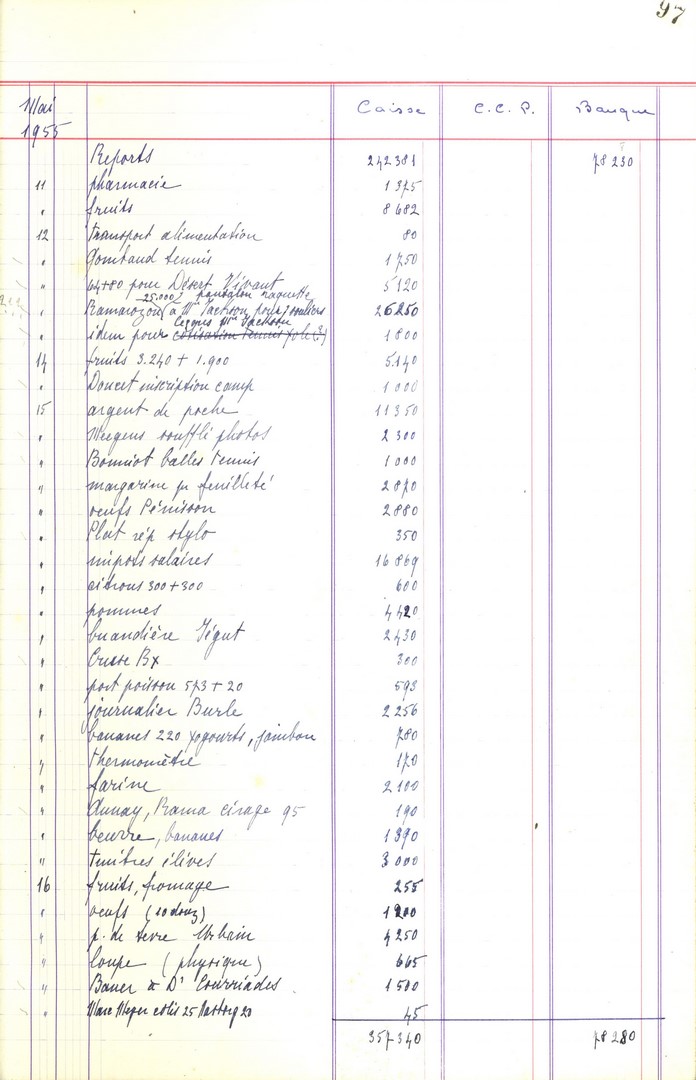 97
Mai 1955 Caisse C.C.P. Banque
Reports 242 381 78 230
11 pharmacie 1 375
" fruits 8 682
12 Transport alimentation 80
" Gombaud tennis 1 750
" 64+80 pour Désert Vivant 5 120
25.000) pantalon raquette
" Ramarozou (à Mr Jackson pour souliers 26 250
leçons Mr Jackson
" idem pour cotisation tennis 1 800
14 fruits 3.240 + 1.900 5 140
" Doucet inscription camp 1 000
15 argent de poche 11 350
" soufflé photos 2 300
" Bonniot balles tennis 1 000
" margarine feuilleté 2 870
" oeufs Pénisson 2 880
" Plat rép stylo 350
" impôts salaires 16 869
" citrons 300+300 600
" pommes 4 420
" buandière Jégut 2 430
" Bx 300
" port poisson 573 + 20 593
" journalier Burle 2 256
" bananes 220 yogourts, jambon 780
" Thermomètre 170
" farine 2 100
" Aunay, Rama cirage 95 190
" beurre, bananes 1 390
" timbres élèves 3 000
16 fruits, fromage 255
" oeufs (10 douz) 1 200
" p. de terre Urbain 4 250
" loupe (physique) 665
" Bauer Dr Courriades 1 500
" Marc Meyer colis 25 20 45
357 340 78 280